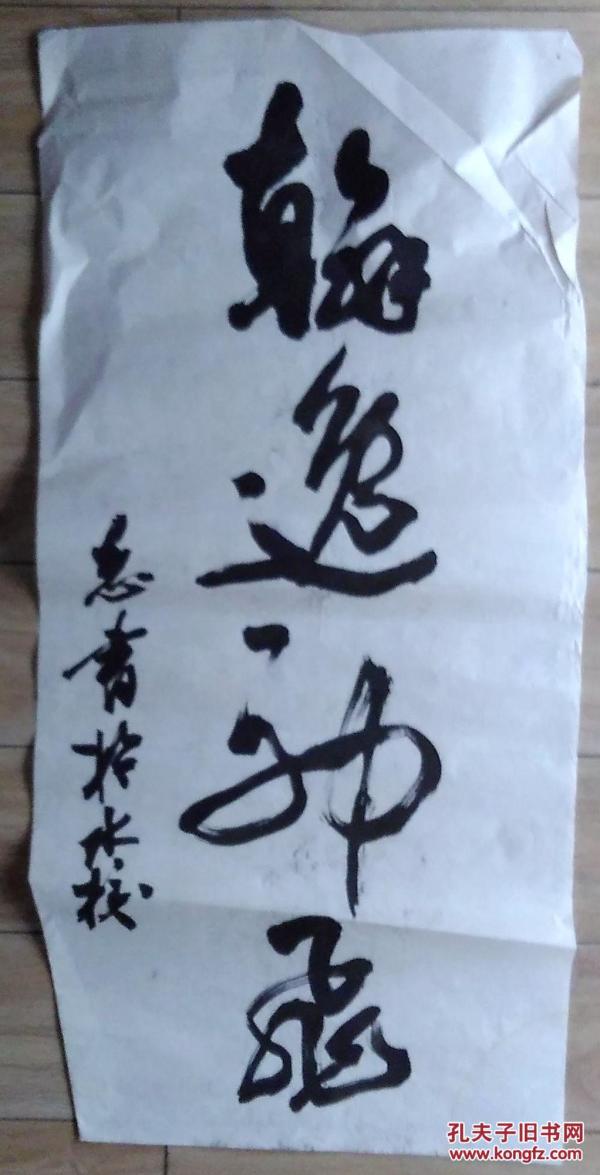 翰逸神飞
志青於水校
孔夫子旧书网
www.kongfz.com